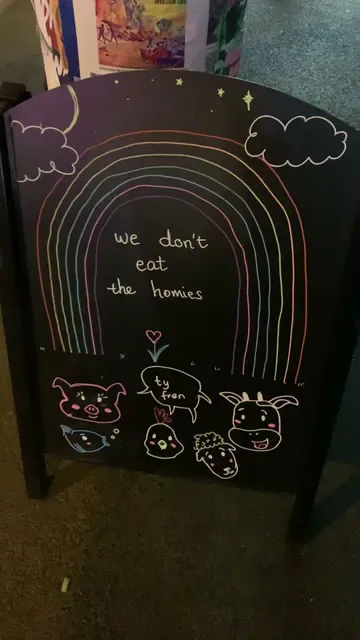 we don't
eat
the homies
ty
fren